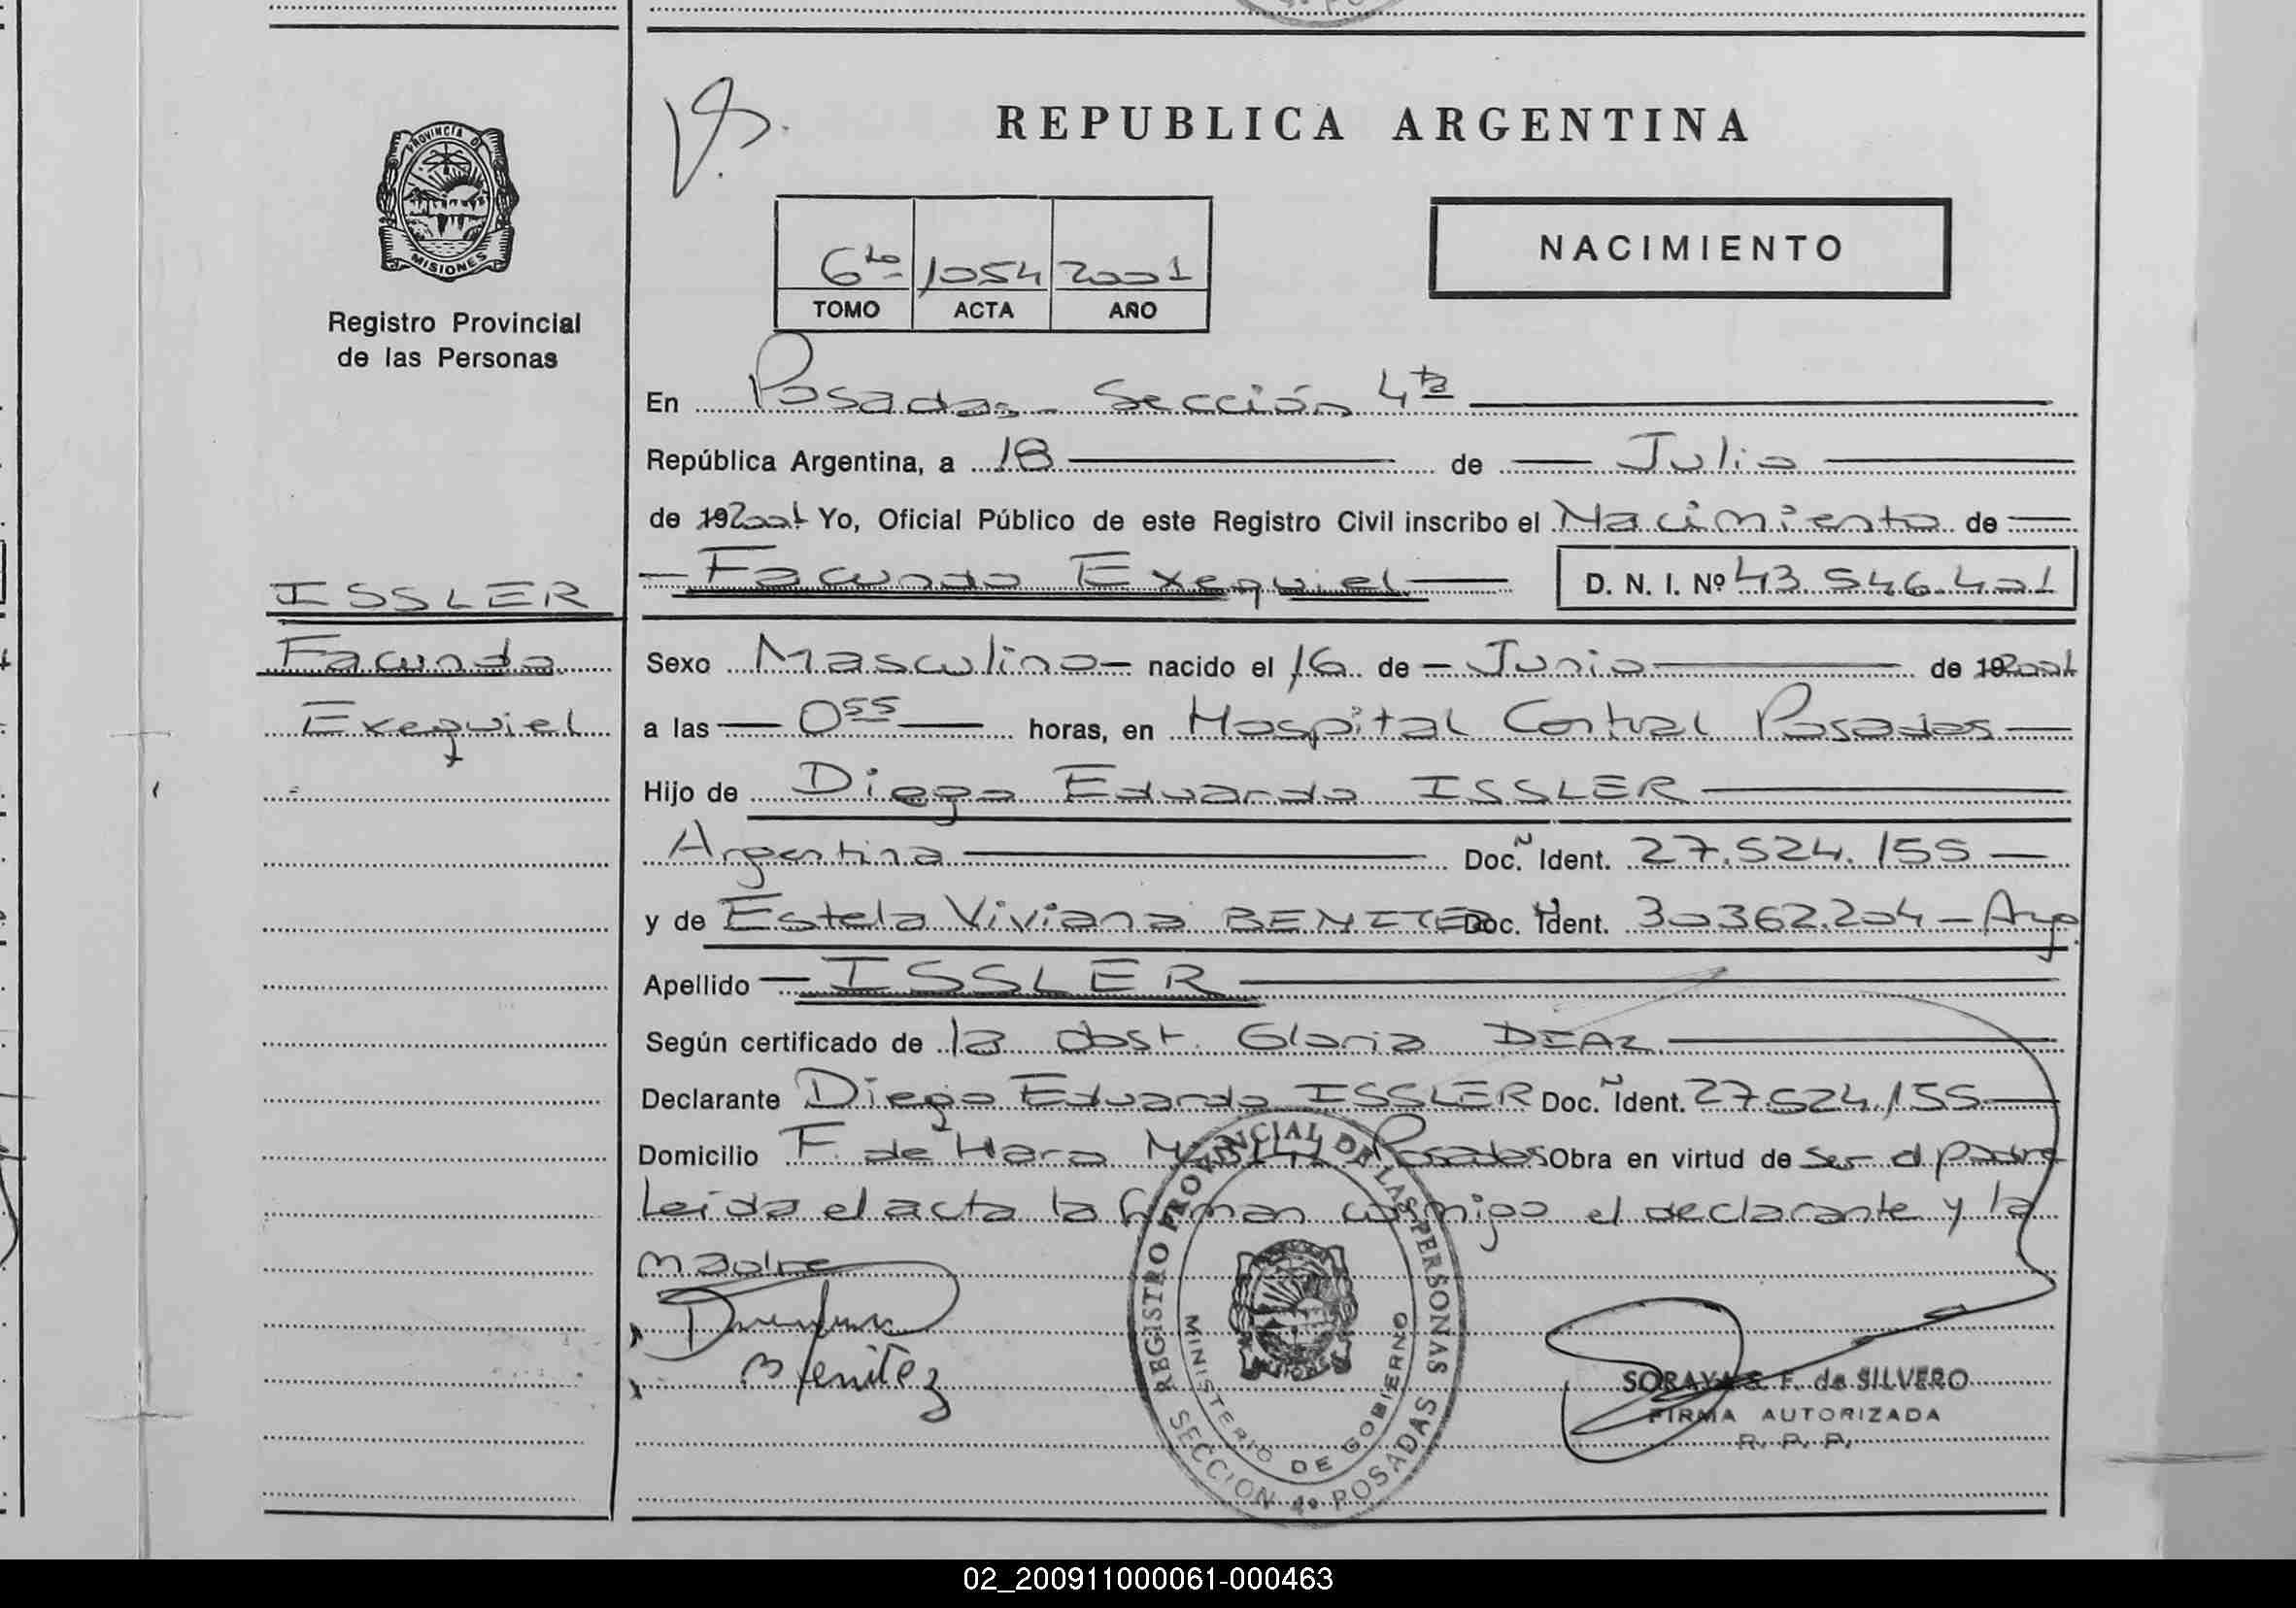 REPUBLICA ARGENTINA
PROVINCIA DE
MISIONES
Registro Provincial
de las Personas
6to 1054 2001
TOMO ACTA AÑO
NACIMIENTO
En Posadas - Sección 4ta
República Argentina, a 18 de Julio
de 19 2001 Yo, Oficial Público de este Registro Civil inscribo el Nacimiento de
Facundo Exequiel D. N. I. Nº 43.546.401
ISSLER
Facundo
Exequiel
Sexo Masculino nacido el 16 de Junio de 19 2001
a las 0 55 horas, en Hospital Central Posadas
Hijo de Diego Eduardo ISSLER
Argentina Doc. Ident. 27.524.155
y de Estela Viviana BENITEZ Doc. Ident. 30362.204 - Arg.
Apellido ISSLER
Según certificado de la obst. Gloria DIAZ
Declarante Diego Eduardo ISSLER Doc. Ident. 27.524.155
Domicilio F. de Haro Posadas Obra en virtud de ser el padre
Leida el acta la firman conmigo el declarante y la
madre
Benitez
REGISTRO PROVINCIAL DE LAS PERSONAS
MINISTERIO DE GOBIERNO
SECCION 4º POSADAS
SORAYA S. F. de SILVERO
FIRMA AUTORIZADA
R. P. P.
02_200911000061-000463